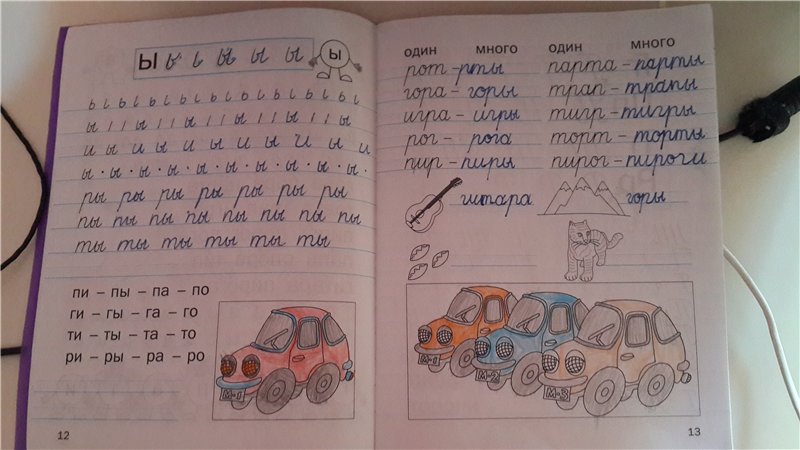 Ы ы ь ы ы ы ы
ы
ь ь ь ь ь ь ь ь ь ь ь ь ь ь ь ь ь ь
ы ı ı ы ı ı ы ı ı ы ı ı ы ı ı ы
и ы и ы и ы и ы и ы и
ы · ы · ы · ы · ы · ы · ы · ы ·
ры ры ры ры ры ры ры
пы пы пы пы пы пы пы пы
ты ты ты ты ты ты
пи – пы – па – по
ги – гы – га – го
ти – ты – та – то
ри – ры – ра – ро
М-1
12
один много один много
рот – рты парта – парты
гора – горы трап – трапы
игра – игры тигр – тигры
рог – рога торт – торты
пир – пиры пирог – пироги
гитара горы
М-1 М-2 М-3
13